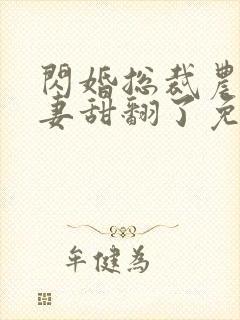 閃婚总裁農
妻甜翻了免
牟健為